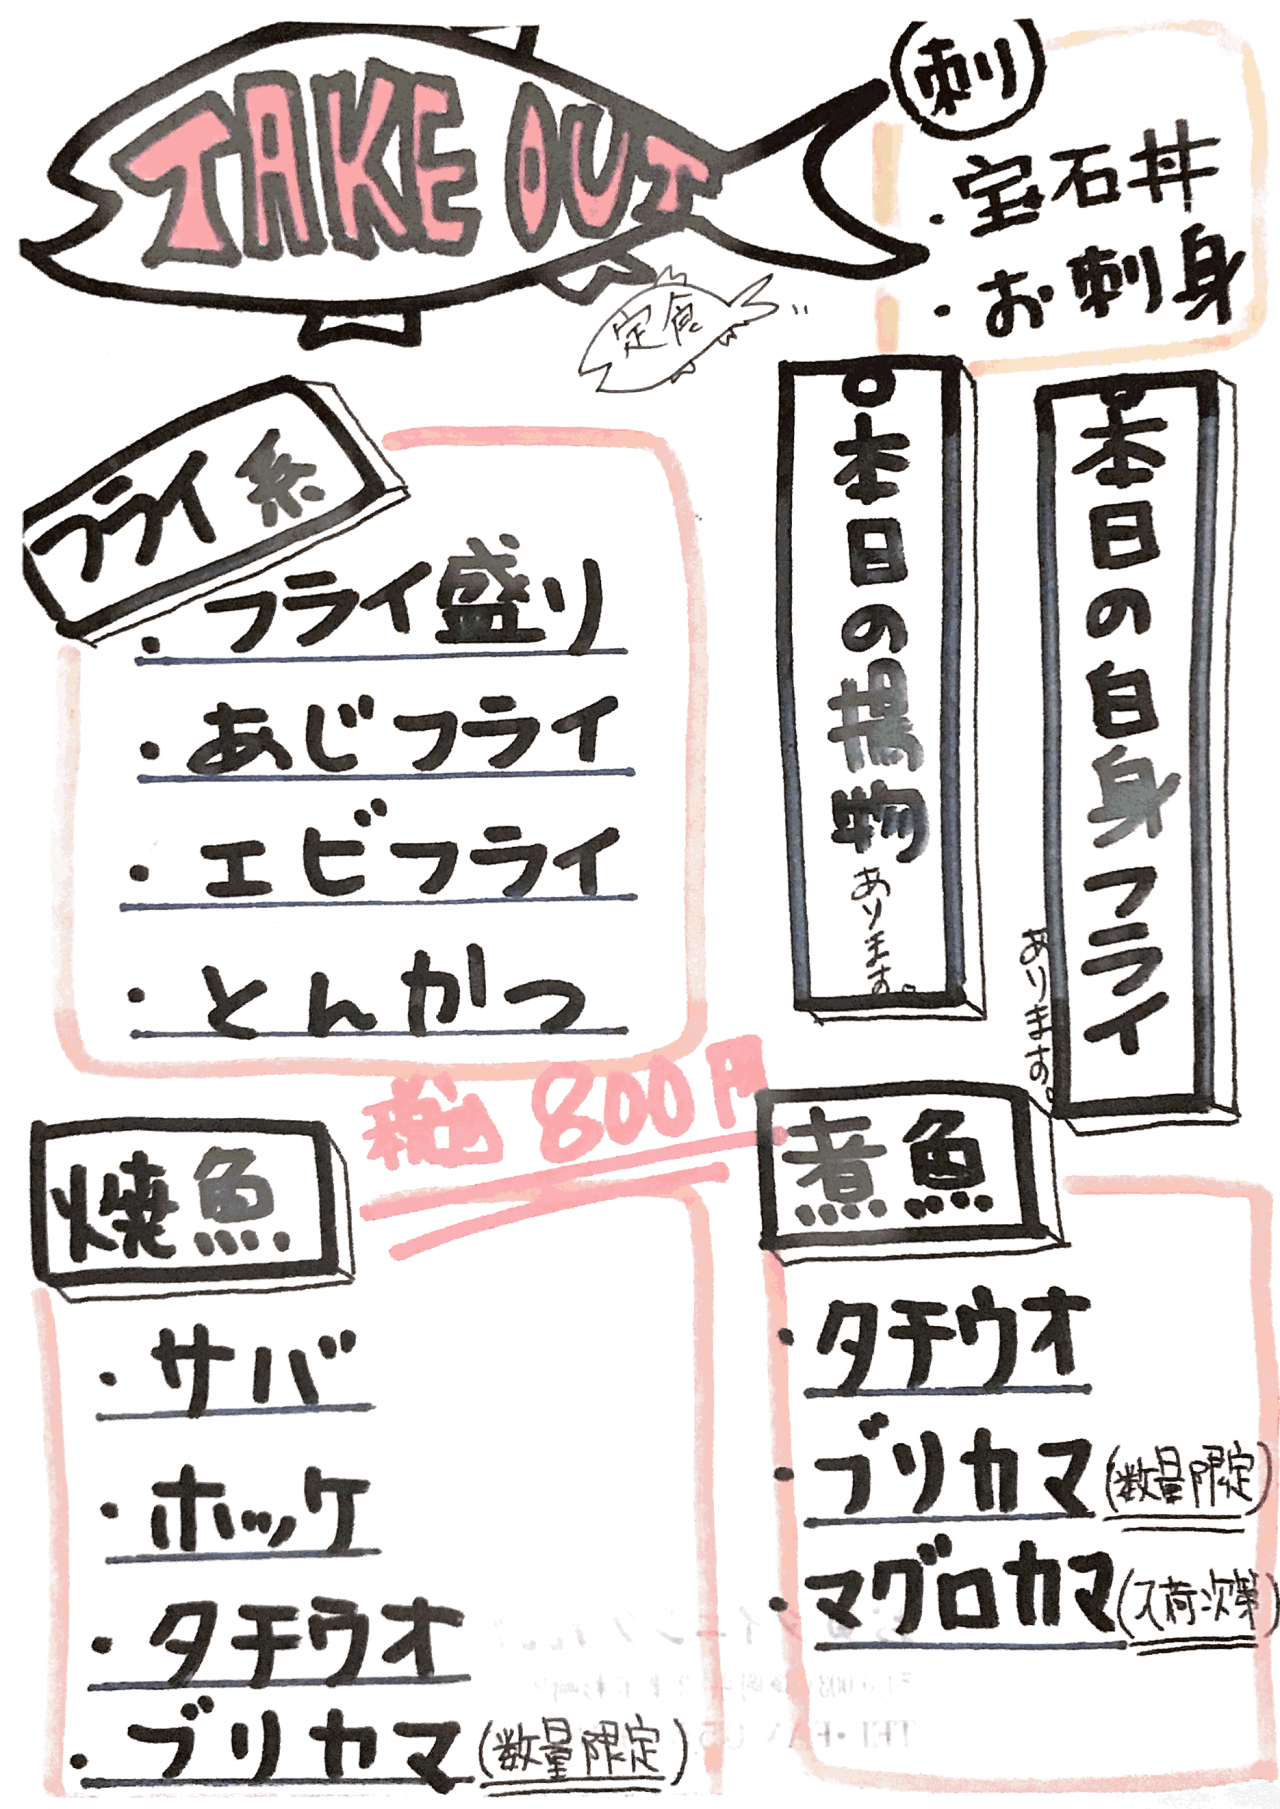 TAKE OUT
定食
刺
・宝石丼
・お刺身
フライ系
・フライ盛り
・あじフライ
・エビフライ
・とんかつ
本日の揚物あります。
本日の白身フライ
あります。
税込 800円
焼魚
・サバ
・ホッケ
・タチウオ
・ブリカマ(数量限定)
煮魚
・タチウオ
・ブリカマ(数量限定)
・マグロカマ(入荷次第)